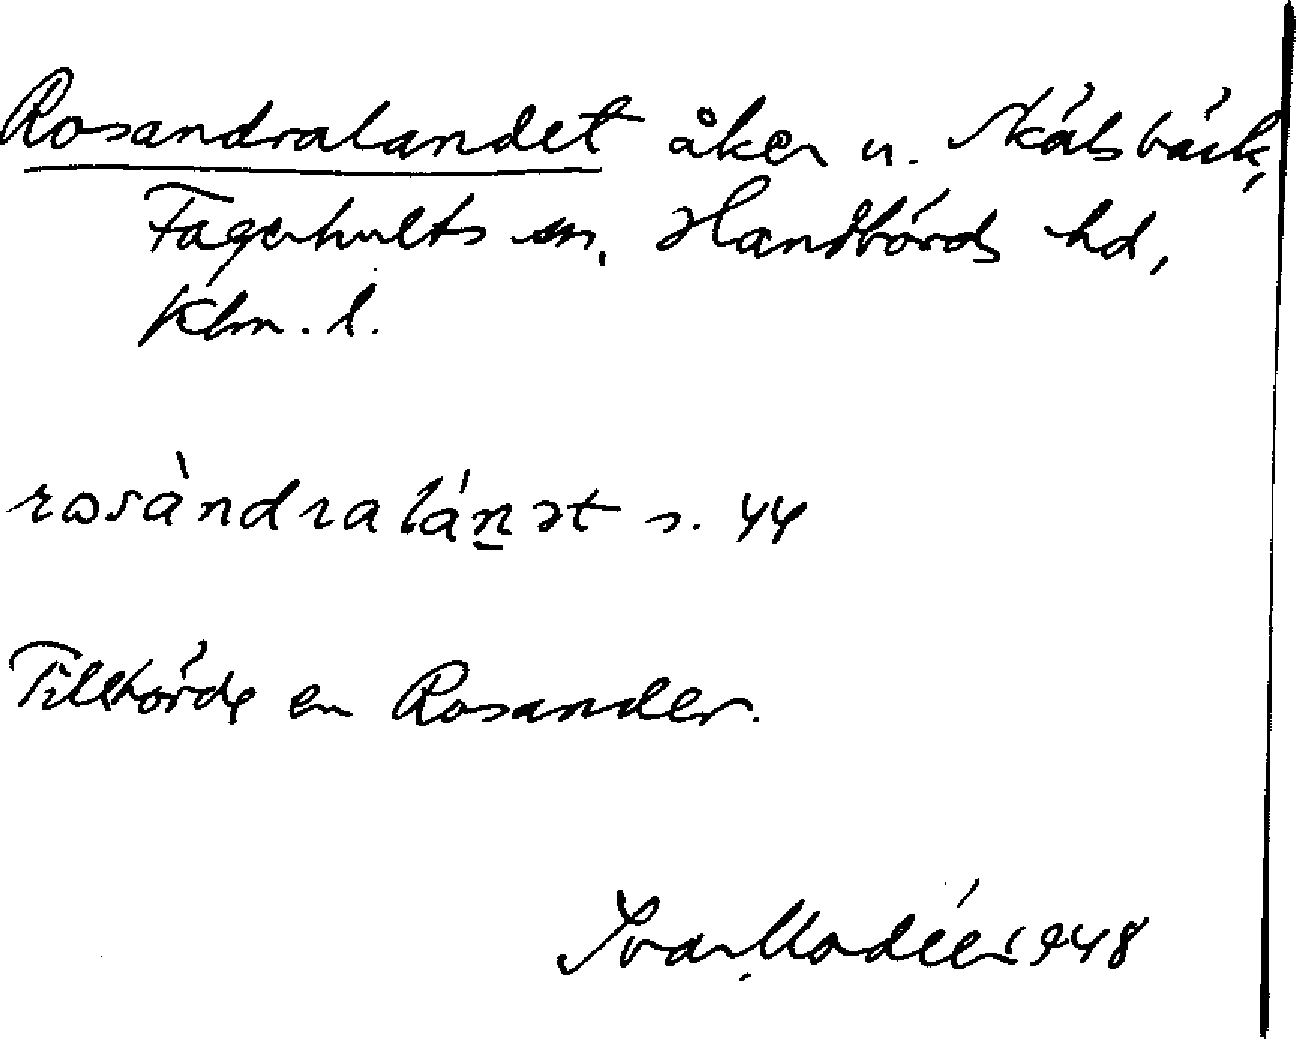 Rosandralandet åker u. Skälsbäck,
Fagerhults sn, Handbörds hd,
Klm. l.
rosàndralánət s. 44
Tillhörde en Rosander.
Ivar Modéer 1948